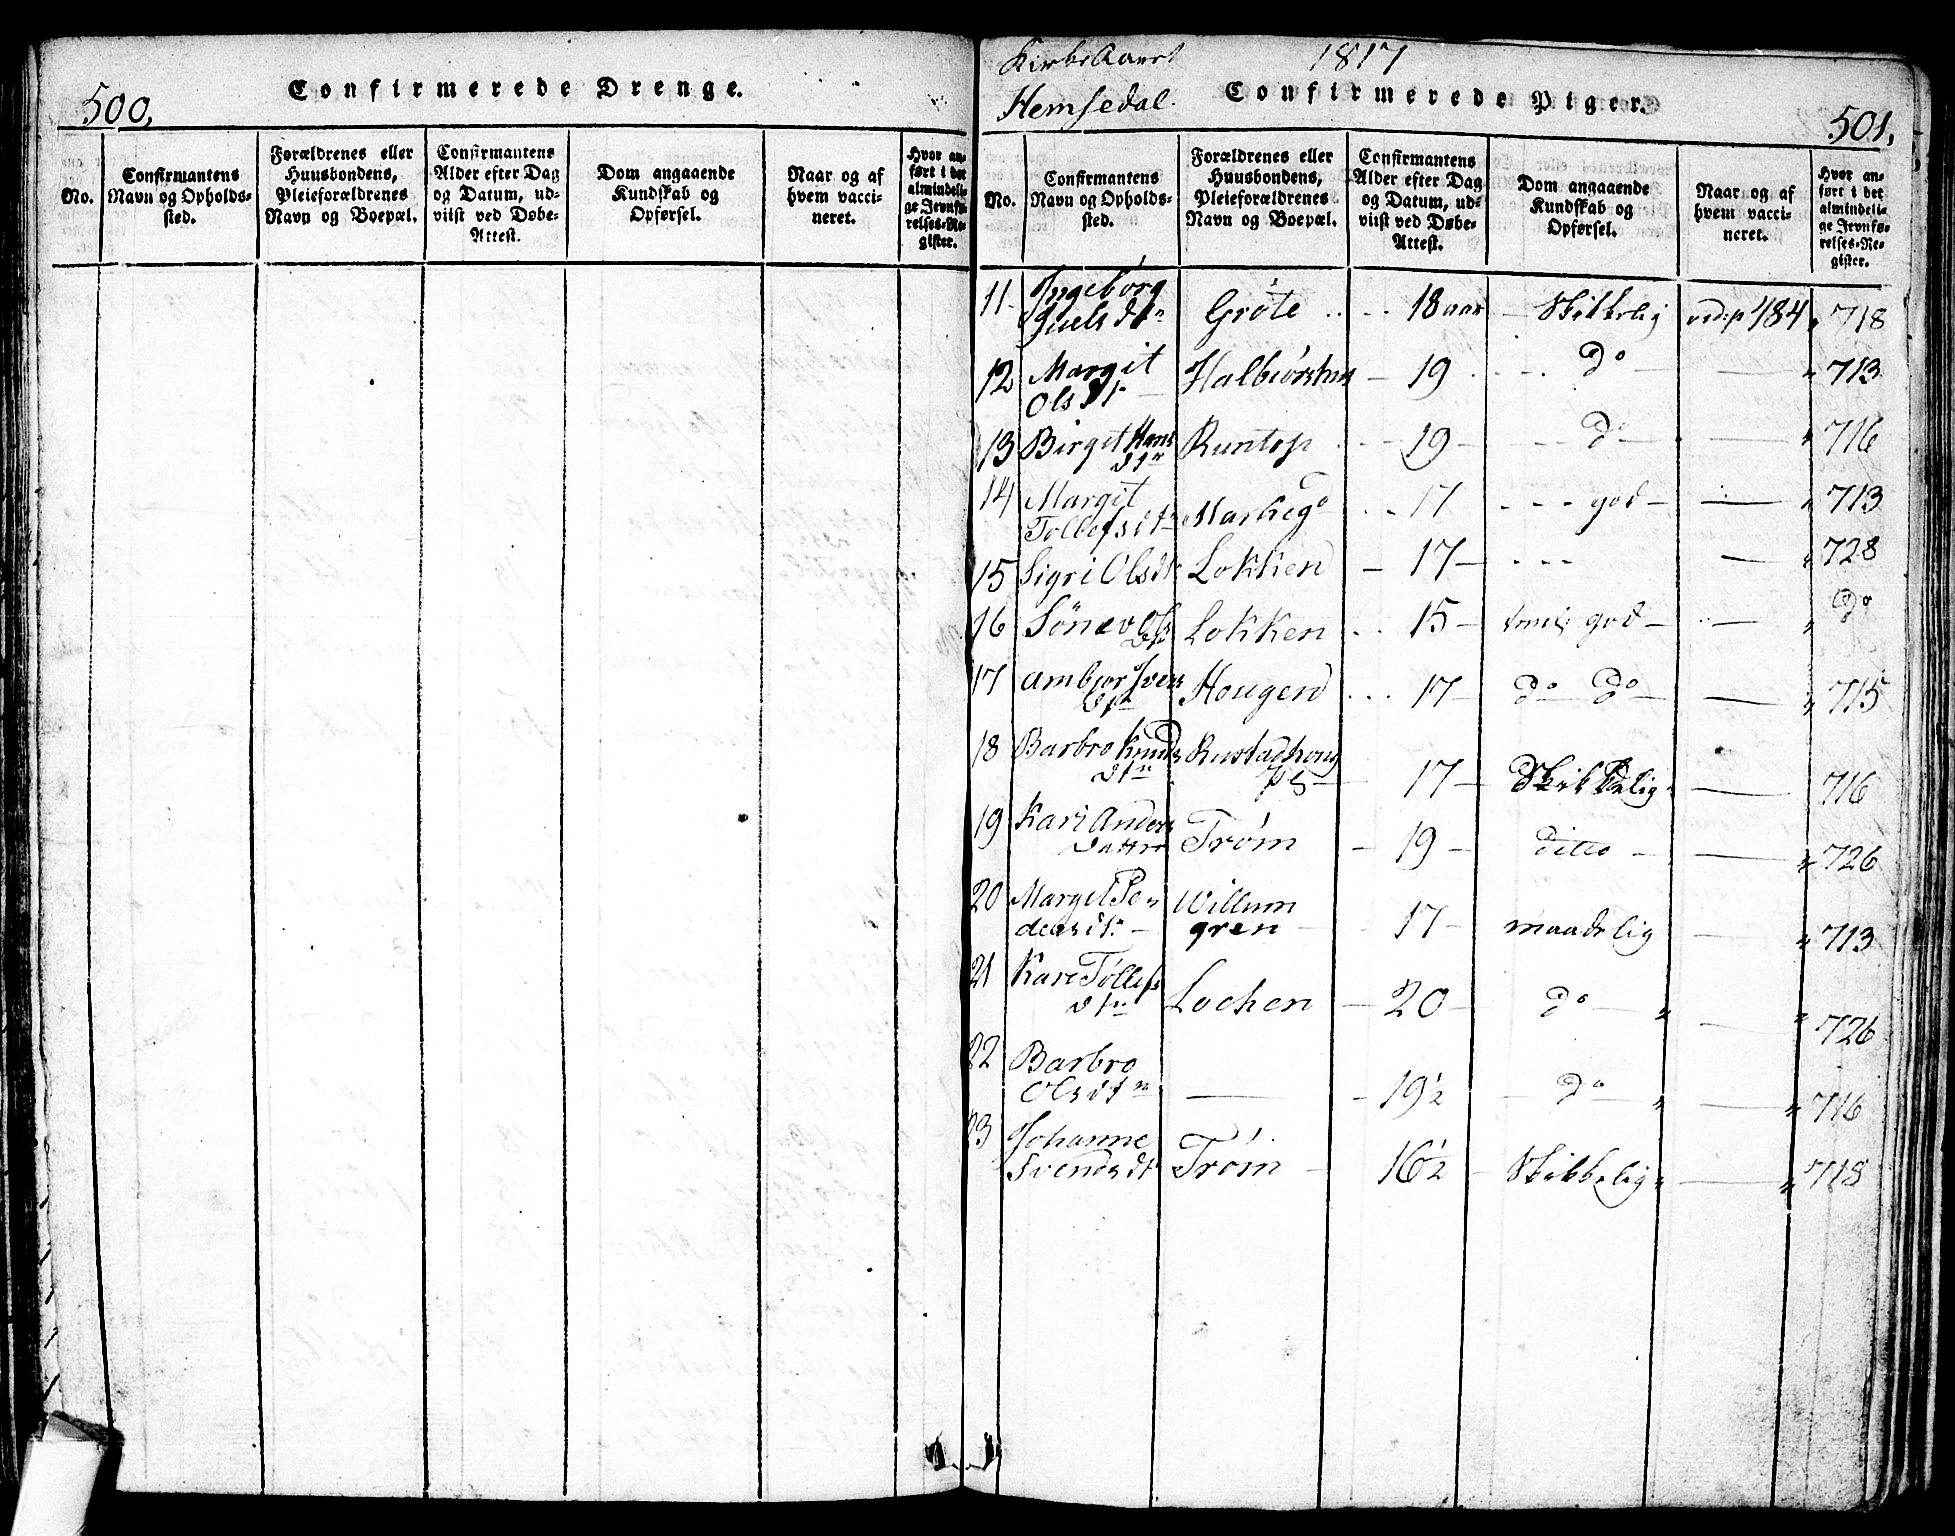 500.
Confirmerede Drenge.
No.
Confirmantens
Navn og Opholds-
sted.
Forældrenes eller
Huusbondens,
Pleieforældrenes
Navn og Boepæl.
Confirmantens
Alder efter Dag
og Datum, ud-
viist ved Døbe-
Attest.
Dom angaaende
Kundskab og
Opførsel.
Naar og af
hvem vacci-
neret.
Hvor an-
ført i det
almindeli-
ge Jevnfø-
relses-Re-
gister.
Kirke Aaret 1817
Hemsedal.
Confirmerede Piger.
501.
No.
Confirmantens
Navn og Opholds-
sted.
Forældrenes eller
Huusbondens,
Pleieforældrenes
Navn og Boepæl.
Confirmantens
Alder efter Dag
og Datum, ud-
viist ved Døbe-
Attest.
Dom angaaende
Kundskab og
Opførsel.
Naar og af
hvem vacci-
neret.
Hvor an-
ført i det
almindeli-
ge Jevnfø-
relses-Re-
gister.
11 Ingeborg
Juels dtn Gröte 18 aar Skikkelig vid: p 484 718
12 Margit
Olsdt 19 do 713
13 Birgit Hans
dtn Runtop 19 do 716
14 Margit
Tollefsdt Markegd 17 god 713
15 Sigri Olsdt Lokken 17 728
16 Sönev Ols Lokken 15 god do
17 Ambjor Svens Hougen 17 do do 715
18 Barbro Knuds
dtn Rustadhoug
pl 17 Skikkelig 716
19 Kari Anders
datter Tröm 19 ditto 726
20 Margit Pe-
dersdt. Willum
gren 17 maadelig 713
21 Kari Töllefs
dtn Lochen 20 do 726
22 Barbro
Olsdtn 19½ do 716
23 Johanne
Svendsdt Tröm 16½ Skikkelig 718